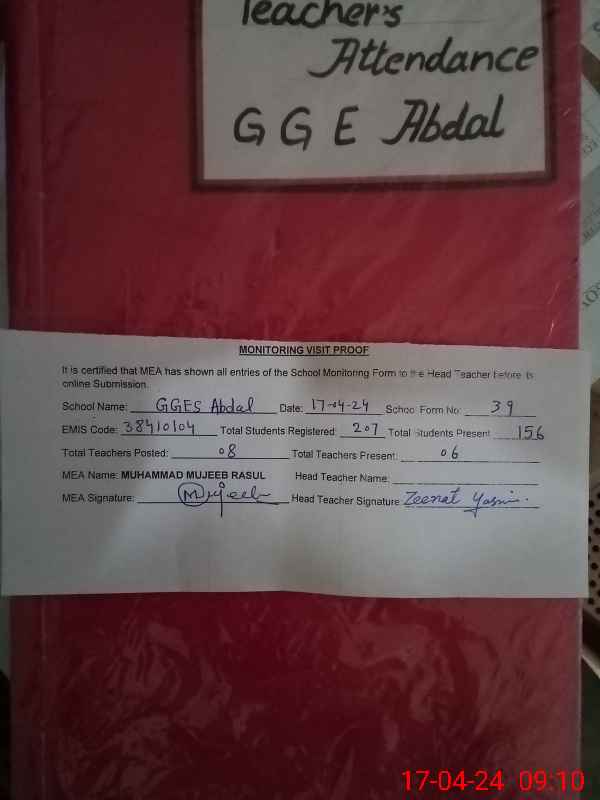 Teacher's
Attendance
G G E Abdal
MONITORING VISIT PROOF
It is certified that MEA has shown all entries of the School Monitoring Form to the Head Teacher before its
online Submission.
School Name: GGES Abdal Date: 17-04-24 School Form No: 39
EMIS Code: 38410104 Total Students Registered: 207 Total Students Present 156
Total Teachers Posted: 08 Total Teachers Present: 06
MEA Name: MUHAMMAD MUJEEB RASUL Head Teacher Name:
MEA Signature: Mujeeb Head Teacher Signature Zeenat Yasmin.
17-04-24 09:10